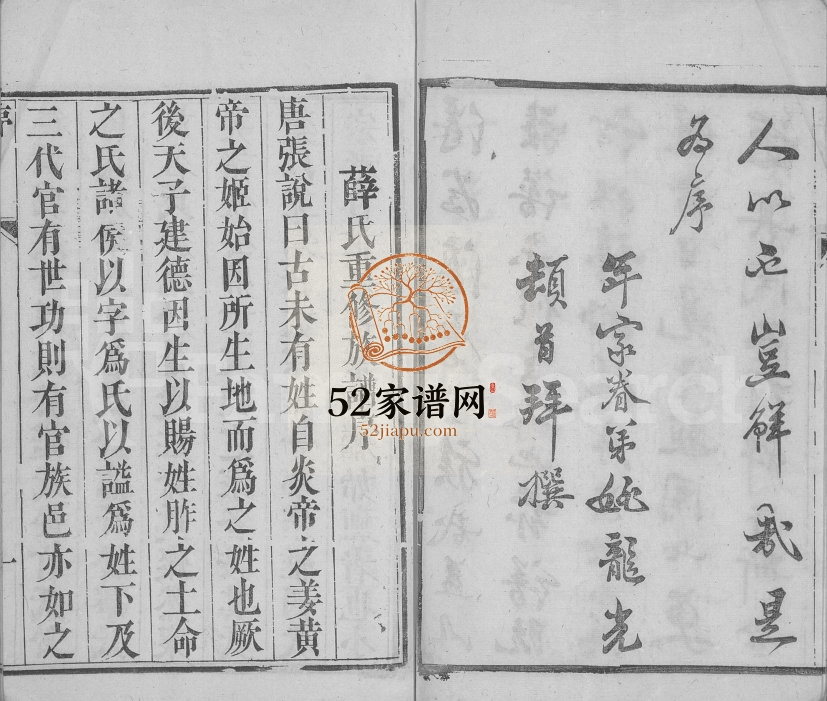 人以也豈鮮哉是
為序
年家眷弟姚龍光
頓首拜撰
薛氏重修族譜序
唐張說曰古未有姓自炎帝之姜黃
帝之姬始因所生地而爲之姓也厥
後天子建德因生以賜姓胙之土命
之氏諸侯以字爲氏以諡爲姓下及
三代官有世功則有官族邑亦如之
序
一
52家谱网
52jiapu.com